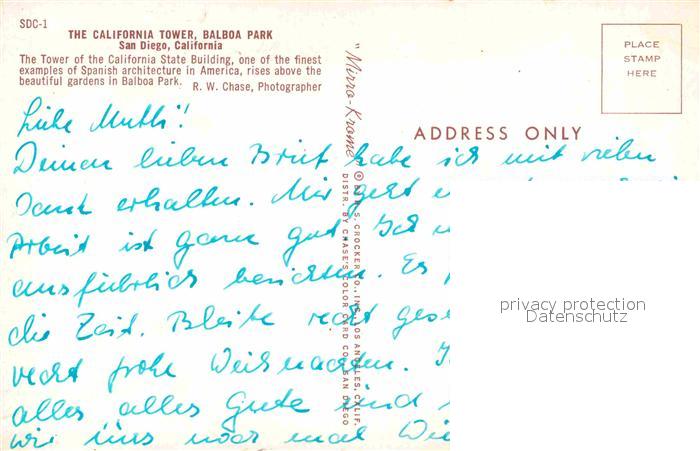 SDC-1
THE CALIFORNIA TOWER, BALBOA PARK
San Diego, California
The Tower of the California State Building, one of the finest
examples of Spanish architecture in America, rises above the
beautiful gardens in Balboa Park.
R. W. Chase, Photographer
"Mirro-Krome"
® BY H. S. CROCKER CO., INC., LOS ANGELES, CALIF.
DISTR. BY CHASE'S COLOR CARD CO., SAN DIEGO
PLACE
STAMP
HERE
ADDRESS ONLY
Liebe Mutti!
Deinen lieben Brief habe ich mit vielen
Dank erhalten. Mir geht
Arbeit ist ganz gut. Ich
ausführlich berichten. Es
die Zeit. Bleibe recht
recht frohe Weihnachten.
alles alles Gute und
wir uns noch mal
privacy protection
Datenschutz